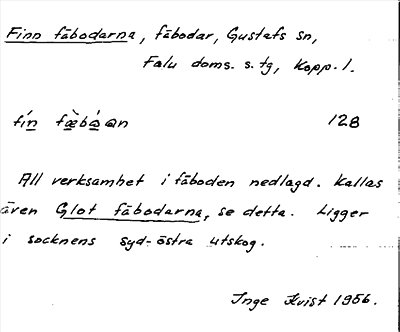 Finn fäbodarna, fäbodar, Gustafs sn,
Falu doms. s. tg, Kopp. l.
fín fæ̀bá ɑn 128
All verksamhet i fäboden nedlagd. Kallas
även Glot fäbodarna, se detta. Ligger
i socknens syd-östra utskog.
Inge Kvist 1956.